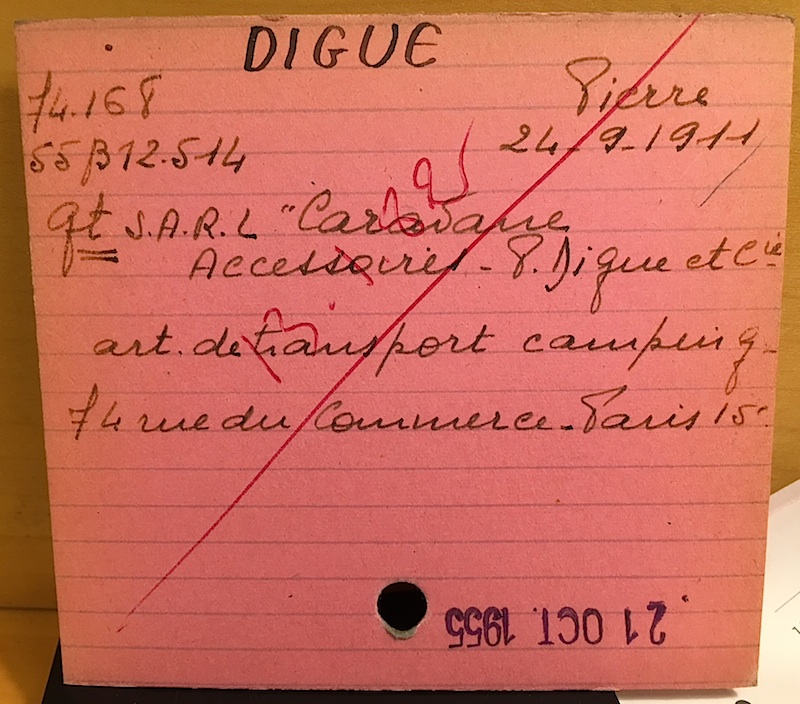 DIGUE
74.168 Pierre
55 B 12.514 24-9-1911
gt S.A.R.L "Caravane
Accessoires - P. Digue et Cie
art. de transport camping -
74 rue du Commerce - Paris 15e
21 OCT. 1955